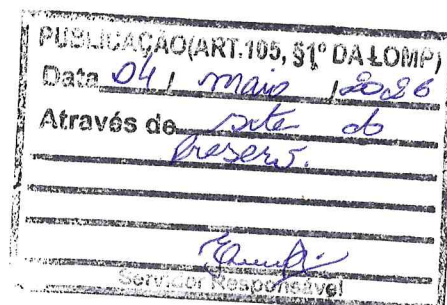 PUBLICAÇÃO (ART.105, §1º DA LOMP)
Data 04 / maio / 2026
Através de site do
Servidor Responsável